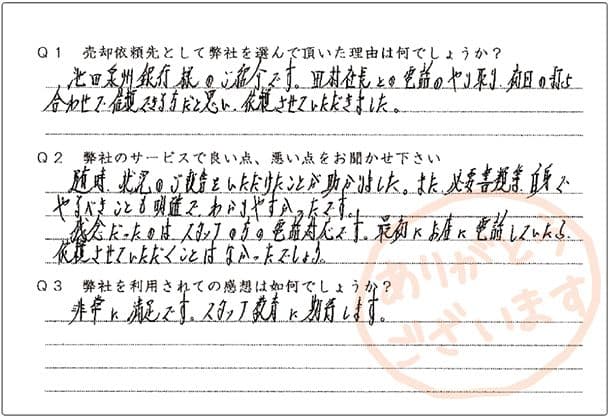 Q1 売却依頼先として弊社を選んで頂いた理由は何でしょうか?
池田泉州銀行様のご紹介です。田村社長との電話のやり取り、初日の打ち
合わせで信頼できる方だと思い、依頼させていただきました。
Q2 弊社のサービスで良い点、悪い点をお聞かせ下さい
随時、状況のご報告をいただけたことが助かりました。また、必要書類等、自身で
やるべきことも明確でわかりやすかったです。
残念だったのはスタッフの方の電話対応です。最初にお店に電話していたら
依頼させていただくことはなかったでしょう。
Q3 弊社を利用されての感想は如何でしょうか?
非常に満足です。スタッフ教育に期待します。
ありがとう
ございます